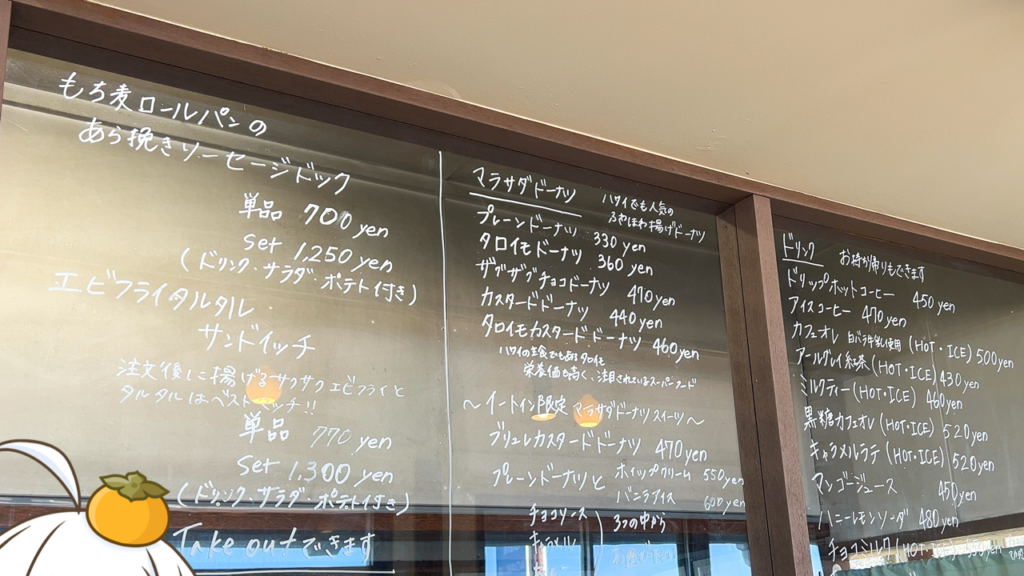 もち麦ロールパンの
あら挽きソーセージドック
単品 700 yen
set 1,250 yen
(ドリンク・サラダ・ポテト付き)
エビフライタルタル
サンドイッチ
注文後に揚げるサクサクエビフライと
タルタルはベストマッチ!!
単品 770 yen
set 1,300 yen
(ドリンク・サラダ・ポテト付き)
Take outできます
マラサダドーナツ
ハワイでも人気の
ふわほわ揚げドーナツ
プレーンドーナツ 330 yen
タロイモドーナツ 360 yen
ザクザクチョコドーナツ 410 yen
カスタードドーナツ 440 yen
タロイモカスタードドーナツ 460 yen
ハワイの主食でもあるタロイモ
栄養価も高く、注目されているスーパーフード
～イートイン限定 マラサダドーナツスイーツ～
ブリュレカスタードドーナツ 470 yen
プレーンドーナツと ホイップクリーム 550 yen
バニラアイス 600 yen
チョコソース
キャラメル
3つの中から
ドリンク お持ち帰りもできます
ドリップホットコーヒー 450 yen
アイスコーヒー 470 yen
カフェオレ 白バラ牛乳使用 (HOT・ICE) 500 yen
アールグレイ紅茶 (HOT・ICE) 430 yen
ミルクティー (HOT・ICE) 460 yen
黒糖カフェオレ (HOT・ICE) 520 yen
キャラメルラテ (HOT・ICE) 520 yen
マンゴージュース 450 yen
ハニーレモンソーダ 480 yen
チョコミルク (HOT